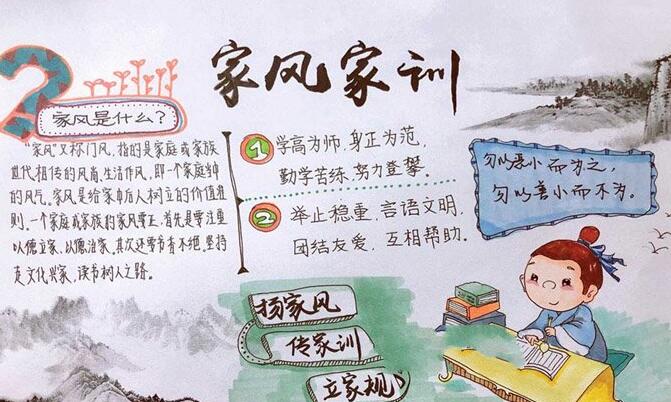 家风家训
家风是什么?
"家风"又称门风,指的是家庭或家族
世代相传的风尚,生活作风,即一个家庭
的风气。家风是给家中后人树立的价值准
则。一个家庭或家族的家风要正,首先是要注重
以德立家、以德治家。其次还要书香不绝。坚持
走文化兴家,读书树人之路。
1 学高为师,身正为范,
勤学苦练,努力登攀。
2 举止稳重,言语文明,
团结友爱,互相帮助。
勿以恶小而为之,
勿以善小而不为。
扬家风
传家训
立家规